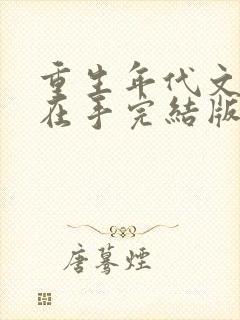 重生年代文
在手完结版
唐蓦煙